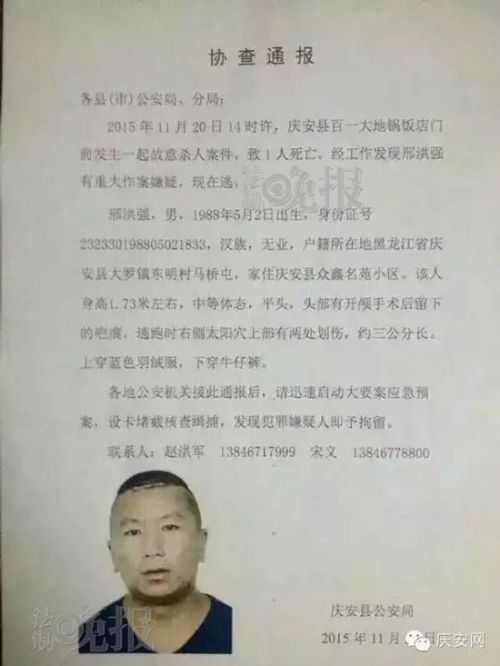 协查通报
各县(市)公安局、分局:
2015年11月20日14时许，庆安县百一大地锅饭店门
前发生一起故意杀人案件，致1人死亡。经工作发现邢洪强
有重大作案嫌疑，现在逃。
法制晚报
邢洪强，男，1988年5月2日出生，身份证号
232330198805021833，汉族，无业，户籍所在地黑龙江省庆
安县大罗镇东明村马桥屯，家住庆安县众鑫名苑小区。该人
身高1.73米左右，中等体态，平头，头部有开颅手术后留下
的疤痕，逃跑时右侧太阳穴上部有两处划伤，约三公分长。
上穿蓝色羽绒服，下穿牛仔裤。
各地公安机关接此通报后，请迅速启动大要案应急预
案，设卡堵截核查缉捕，发现犯罪嫌疑人即予拘留。
联系人：赵洪军 13846717999 宋义 13846778800
法制晚报
庆安县公安局
2015年11月
庆安网